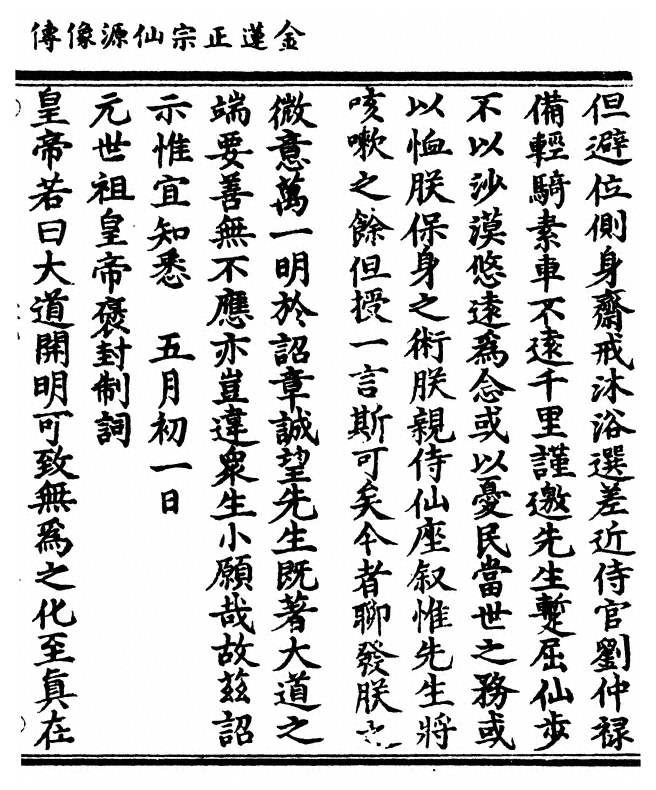 金蓮正宗仙源像傳
但避位側身齋戒沐浴選差近侍官劉仲祿
備輕騎素車不遠千里謹邀先生蹔屈仙步
不以沙漠悠遠爲念或以憂民當世之務或
以恤朕保身之術朕親侍仙座叙惟先生將
咳嗽之餘但授一言斯可矣今者聊發朕之
微意萬一明於詔章誠望先生既著大道之
端要善無不應亦豈違衆生小願哉故玆詔
示惟宜知悉　五月初一日
元世祖皇帝褒封制詞
皇帝若曰大道開明可致無爲之化至眞在